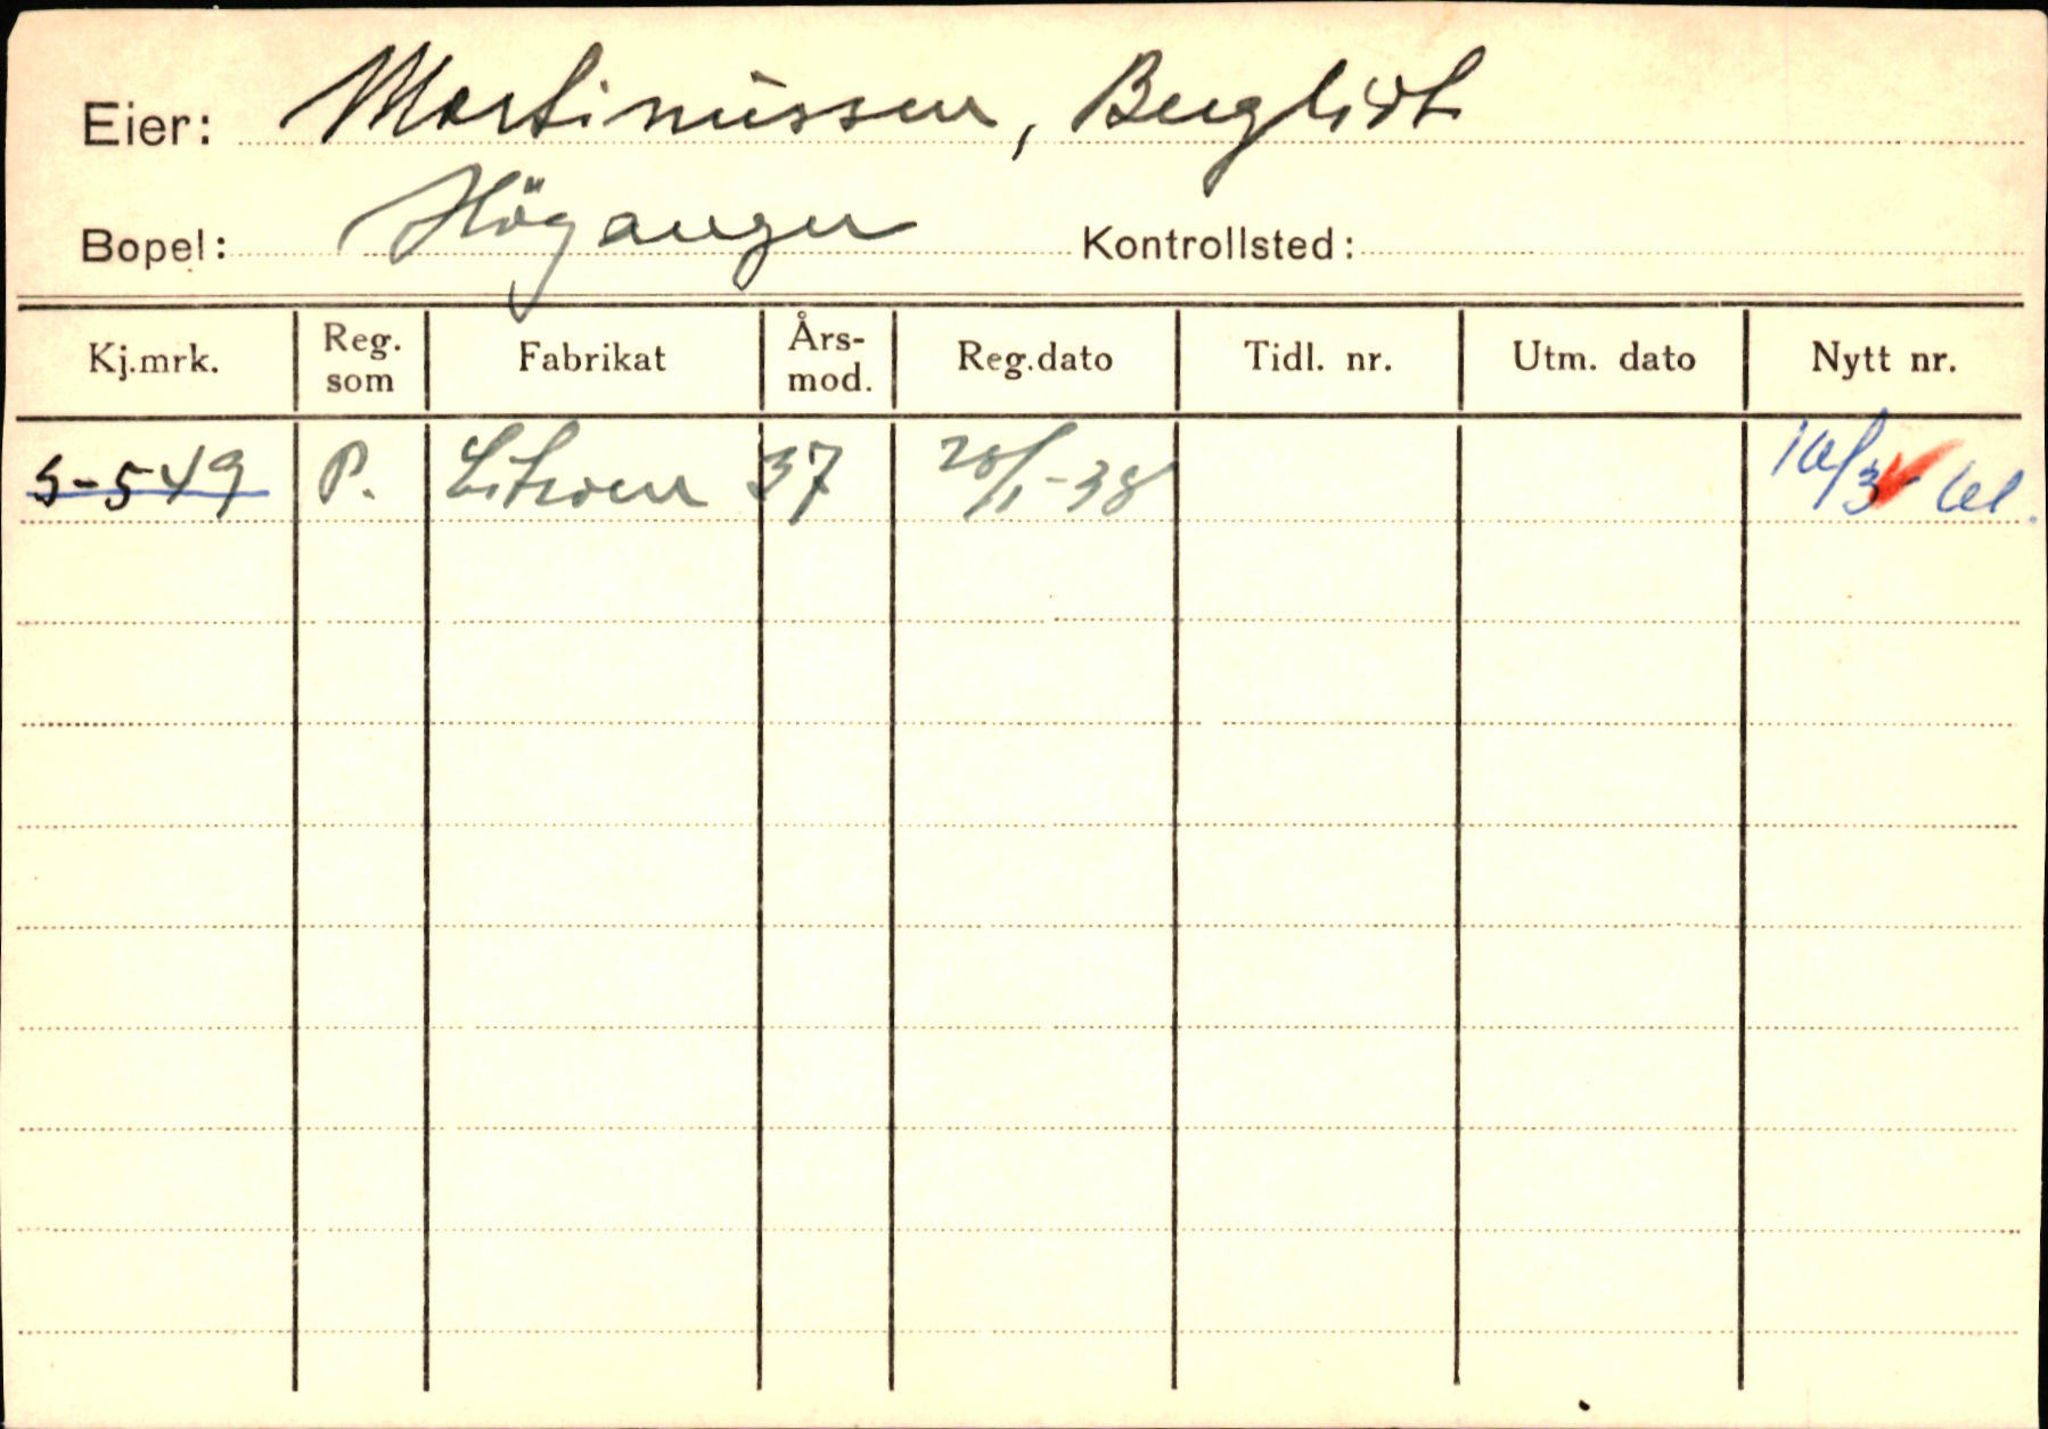 Eier: Martinussen, Bergliot
Bopel: Höyanger Kontrollsted:
Kj.mrk. Reg. som Fabrikat Års-mod. Reg.dato Tidl. nr. Utm. dato Nytt nr.
S-549 P. Citroen 37 20/1-38 16/3-61.